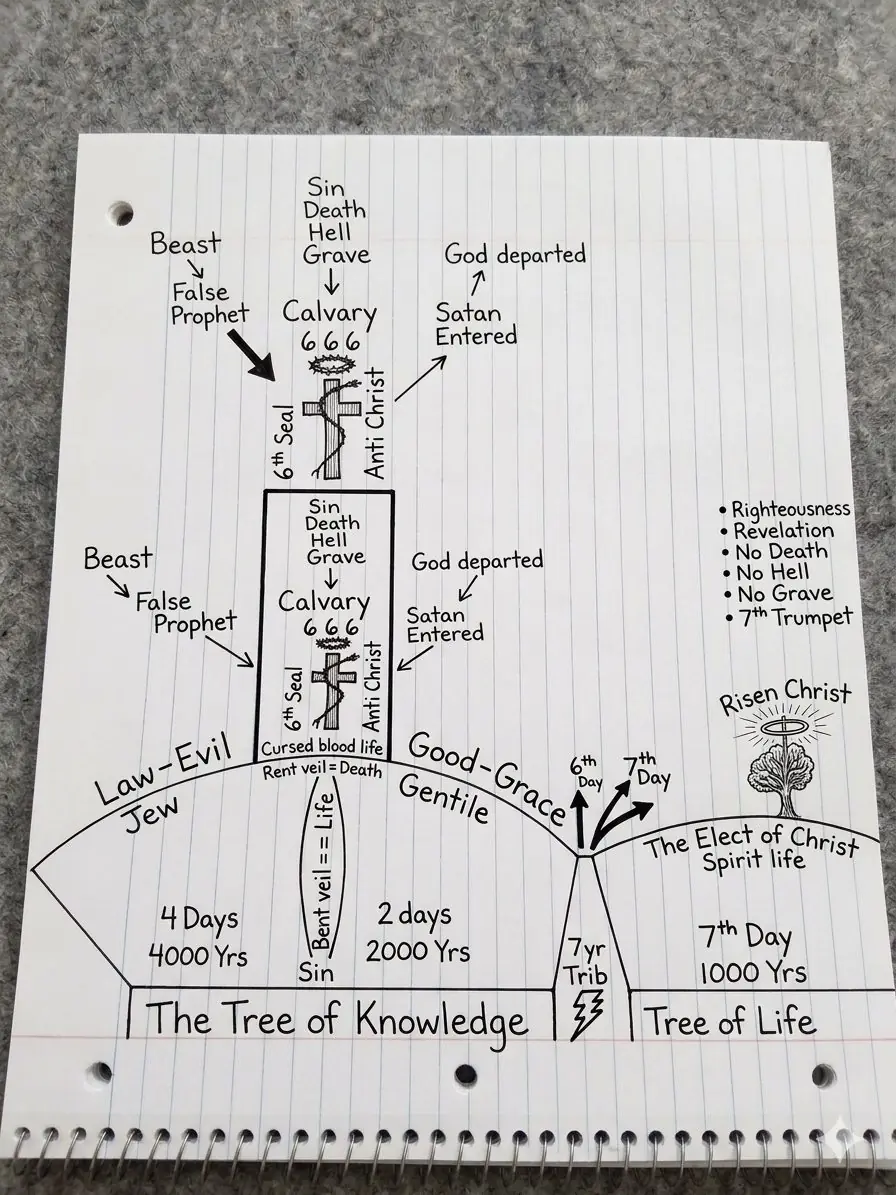 Sin
Death
Hell
Grave
Beast
False
Prophet
Calvary
6 6 6
6th Seal
Anti Christ
God departed
Satan
Entered
Sin
Death
Hell
Grave
Beast
False
Prophet
Calvary
6 6 6
6th Seal
Anti Christ
God departed
Satan
Entered
• Righteousness
• Revelation
• No Death
• No Hell
• No Grave
• 7th Trumpet
Cursed blood life
Rent veil = Death
Law-Evil
Jew
Good-Grace
Gentile
Bent veil == Life
Sin
4 Days
4000 Yrs
2 days
2000 Yrs
6th
Day
7th
Day
7yr
Trib
Risen Christ
The Elect of Christ
Spirit life
7th Day
1000 Yrs
The Tree of Knowledge
Tree of Life